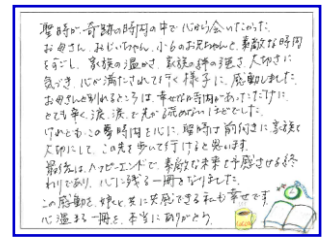 聖時が、奇跡の時間の中で心から会いたかった
お母さん、おじいちゃん、小6のお兄ちゃんと、素敵な時間
をすごし、家族の温かさ、家族の絆の強さ、大切さに
気づき、心が満たされて行く様子に、感動しました。
お母さんと別れるところは、幸せな時間があっただけに、
とても辛く、涙、涙で先が読めないほどでした。
けれども、この聖時間を心に、聖時は前向きに家族を
大切にして、この先を歩いて行けると思います。
最後は、ハッピーエンドで、素敵な未来を予感させる終
わりであり、心に残る一冊となりました。
この感動を、娘と共に共感できる私も幸せです。
心温まる一冊を、本当にありがとう。